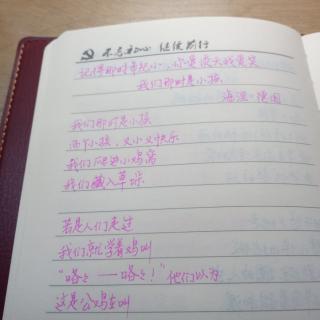 不忘初心 继续前行
记得那时年纪小，你爱谈天我爱笑
我们那时是小孩
海涅·德国
我们那时是小孩
两个小孩，又小又快乐
我们爬进小鸡窝
我们藏入草垛
若是人们走过
我们就学着鸡叫
“咯咯——咯咯！”他们以为
这是公鸡在叫